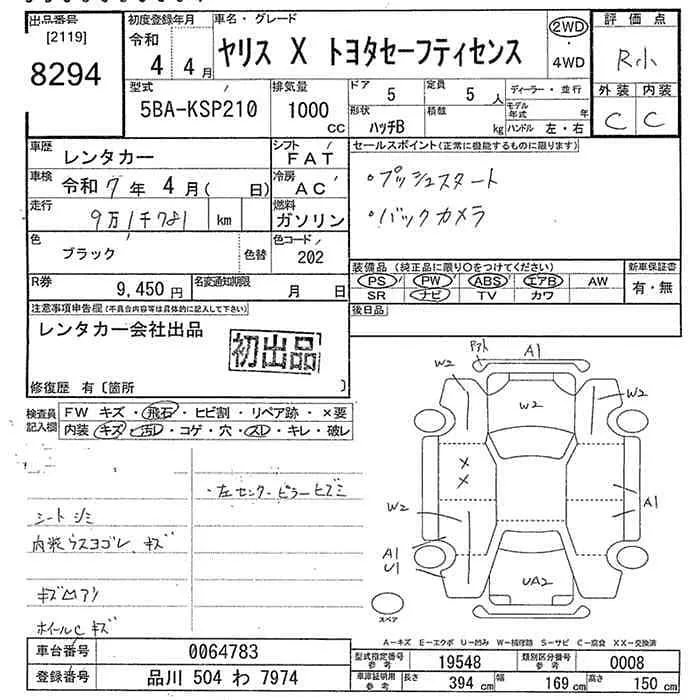 出品番号
[2119]
8294
初度登録年月
令和
4 4月
車名・グレード
ヤリス X トヨタセーフティセンス
2WD
・
4WD
評価点
R小
外装 内装
C C
型式
5BA-KSP210
排気量
1000
CC
ドア 5
定員 5 人
形状 ハッチB
積載 kg
ディーラー・並行
モデル年式 年
ハンドル 左・右
車歴
レンタカー
シフト
FAT
車検 令和 7年 4月( 日)
冷房
AC
走行
9万1千781 km
燃料
ガソリン
色
ブラック
色替
色コード
202
R券
9,450円
名変通知期限
月 日
セールスポイント(正常に機能するものに限ります)
・プッシュスタート
・バックカメラ
装備品(純正品に限り○をつけてください)
PS PW ABS エアB AW
SR ナビ TV カワ
新車保証書
有・無
後日品
注意事項申告欄(不具合内容等は具体的に記入して下さい)
レンタカー会社出品
初出品
修復歴 有〔箇所 〕
検査員記入欄
FW キズ・飛石・ヒビ割・リペア跡・×要
内装 キズ・汚レ・コゲ・穴・スレ・キレ・破レ
・左センターピラーヒズミ
シートシミ
内装ウスヨゴレ、キズ
キズ凹アリ
ホイールCキズ
A1
W2
W2
W2
×
×
W2
A1
A1
U1
UA2
スペア
A-キズ E-エクボ U-凹み W-補修跡 S-サビ C-腐食 XX-交換済
車台番号
0064783
登録番号
品川 504 わ 7974
型式指定番号
参考
19548
類別区分番号
参考
0008
車庫証明用
参考
長さ 394 cm
幅 169 cm
高さ 150 cm